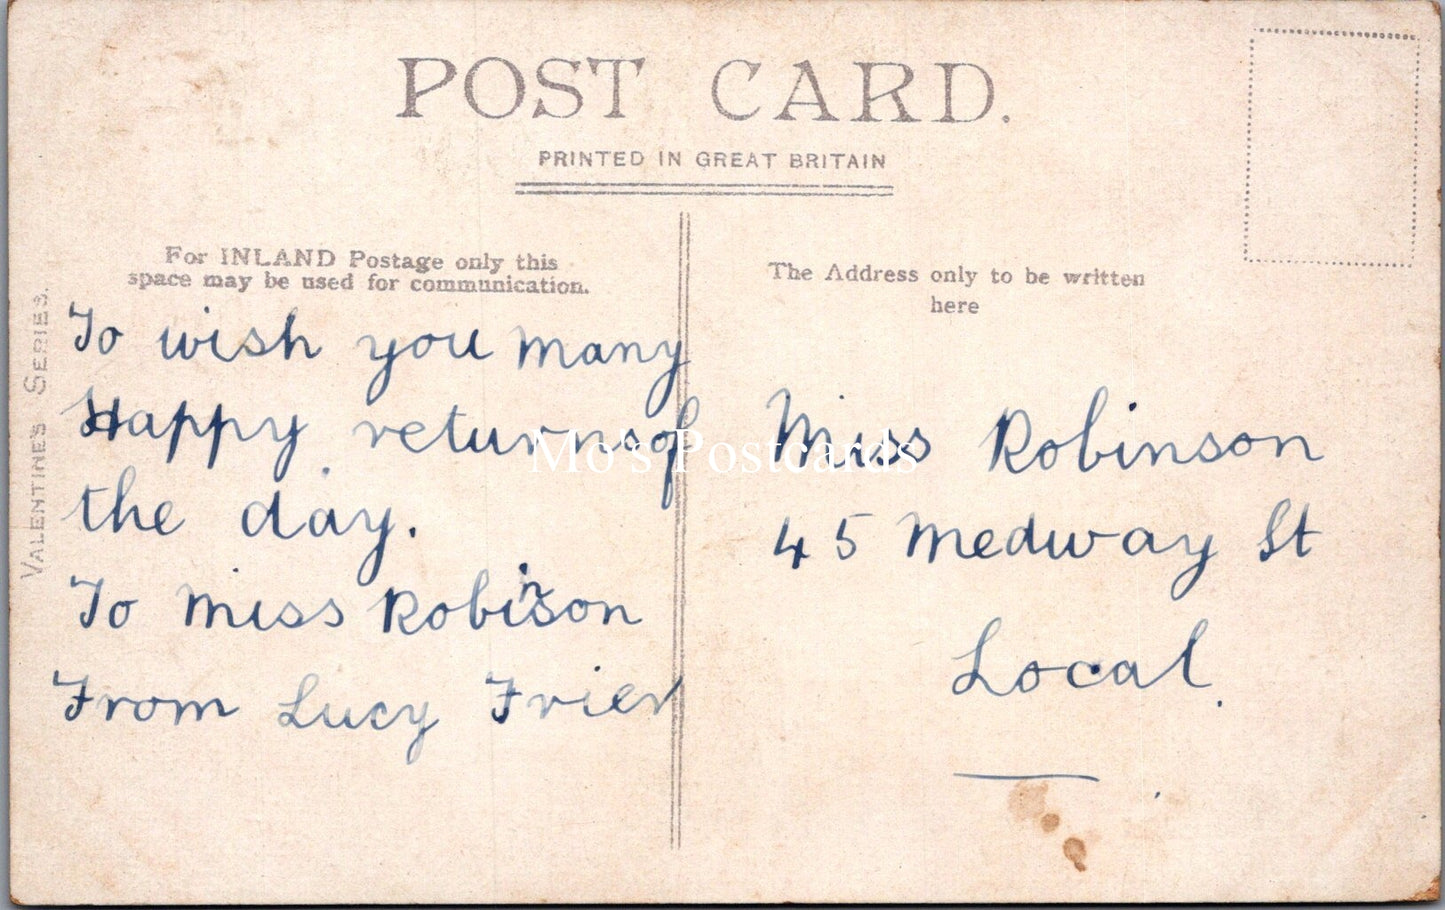 POST CARD.
PRINTED IN GREAT BRITAIN
For INLAND Postage only this
space may be used for communication.
The Address only to be written
here
VALENTINE'S SERIES.
To wish you many
Happy returns of
the day.
To Miss Robinson
From Lucy Frier
Miss Robinson
45 Medway St
Local.
Mo's Postcards